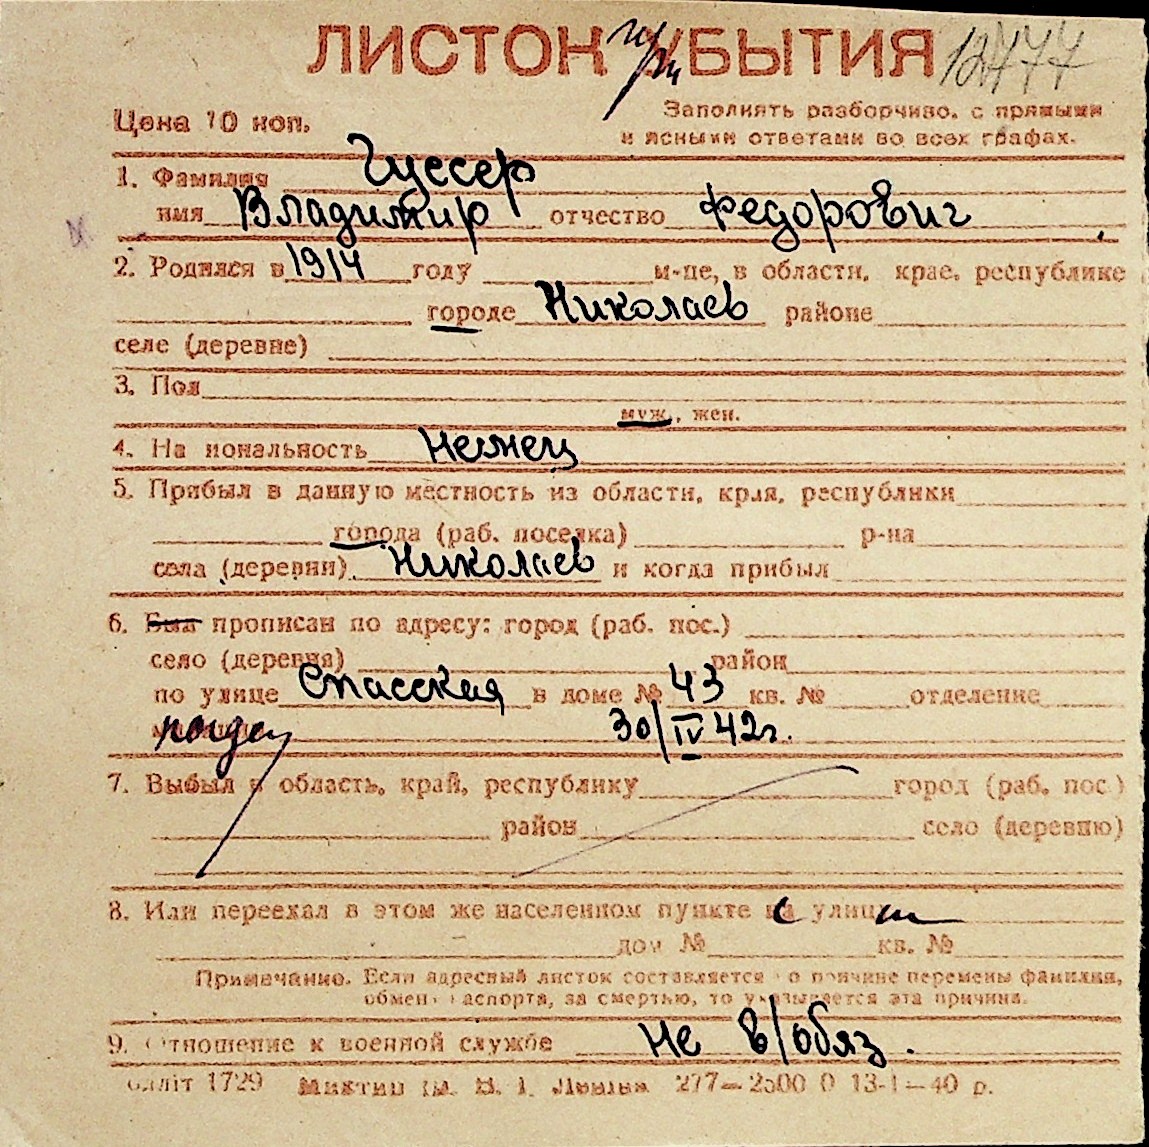 ЛИСТОК при БЫТИЯ 12777
Цена 10 коп.
Заполнять разборчиво, с прямыми
и ясными ответами во всех графах.
1. Фамилия Гуссер
имя Владимир отчество Федорович
2. Родился в 1914 году м-це, в области, крае, республике
городе Николаев районе
селе (деревне)
3. Пол
муж., жен.
4. На иональность немец
5. Прибыл в данную местность из области, края, республики
города (раб. поселка) р-на
села (деревни) Николаев и когда прибыл
6. Был прописан по адресу: город (раб. пос.)
село (деревня) район
по улице Спасская в доме № 43 кв. № отделение
30/IV 42г.
7. Выбыл в область, край, республику город (раб. пос.)
район село (деревню)
8. Или переехал в этом же населенном пункте с улицы
дом № кв. №
Примечание. Если адресный листок составляется по причине перемены фамилии,
обмен паспорта, за смертью, то указывается эта причина.
9. Отношение к военной службе не в/обяз.
1729 277—2500 0 13-І—40 р.